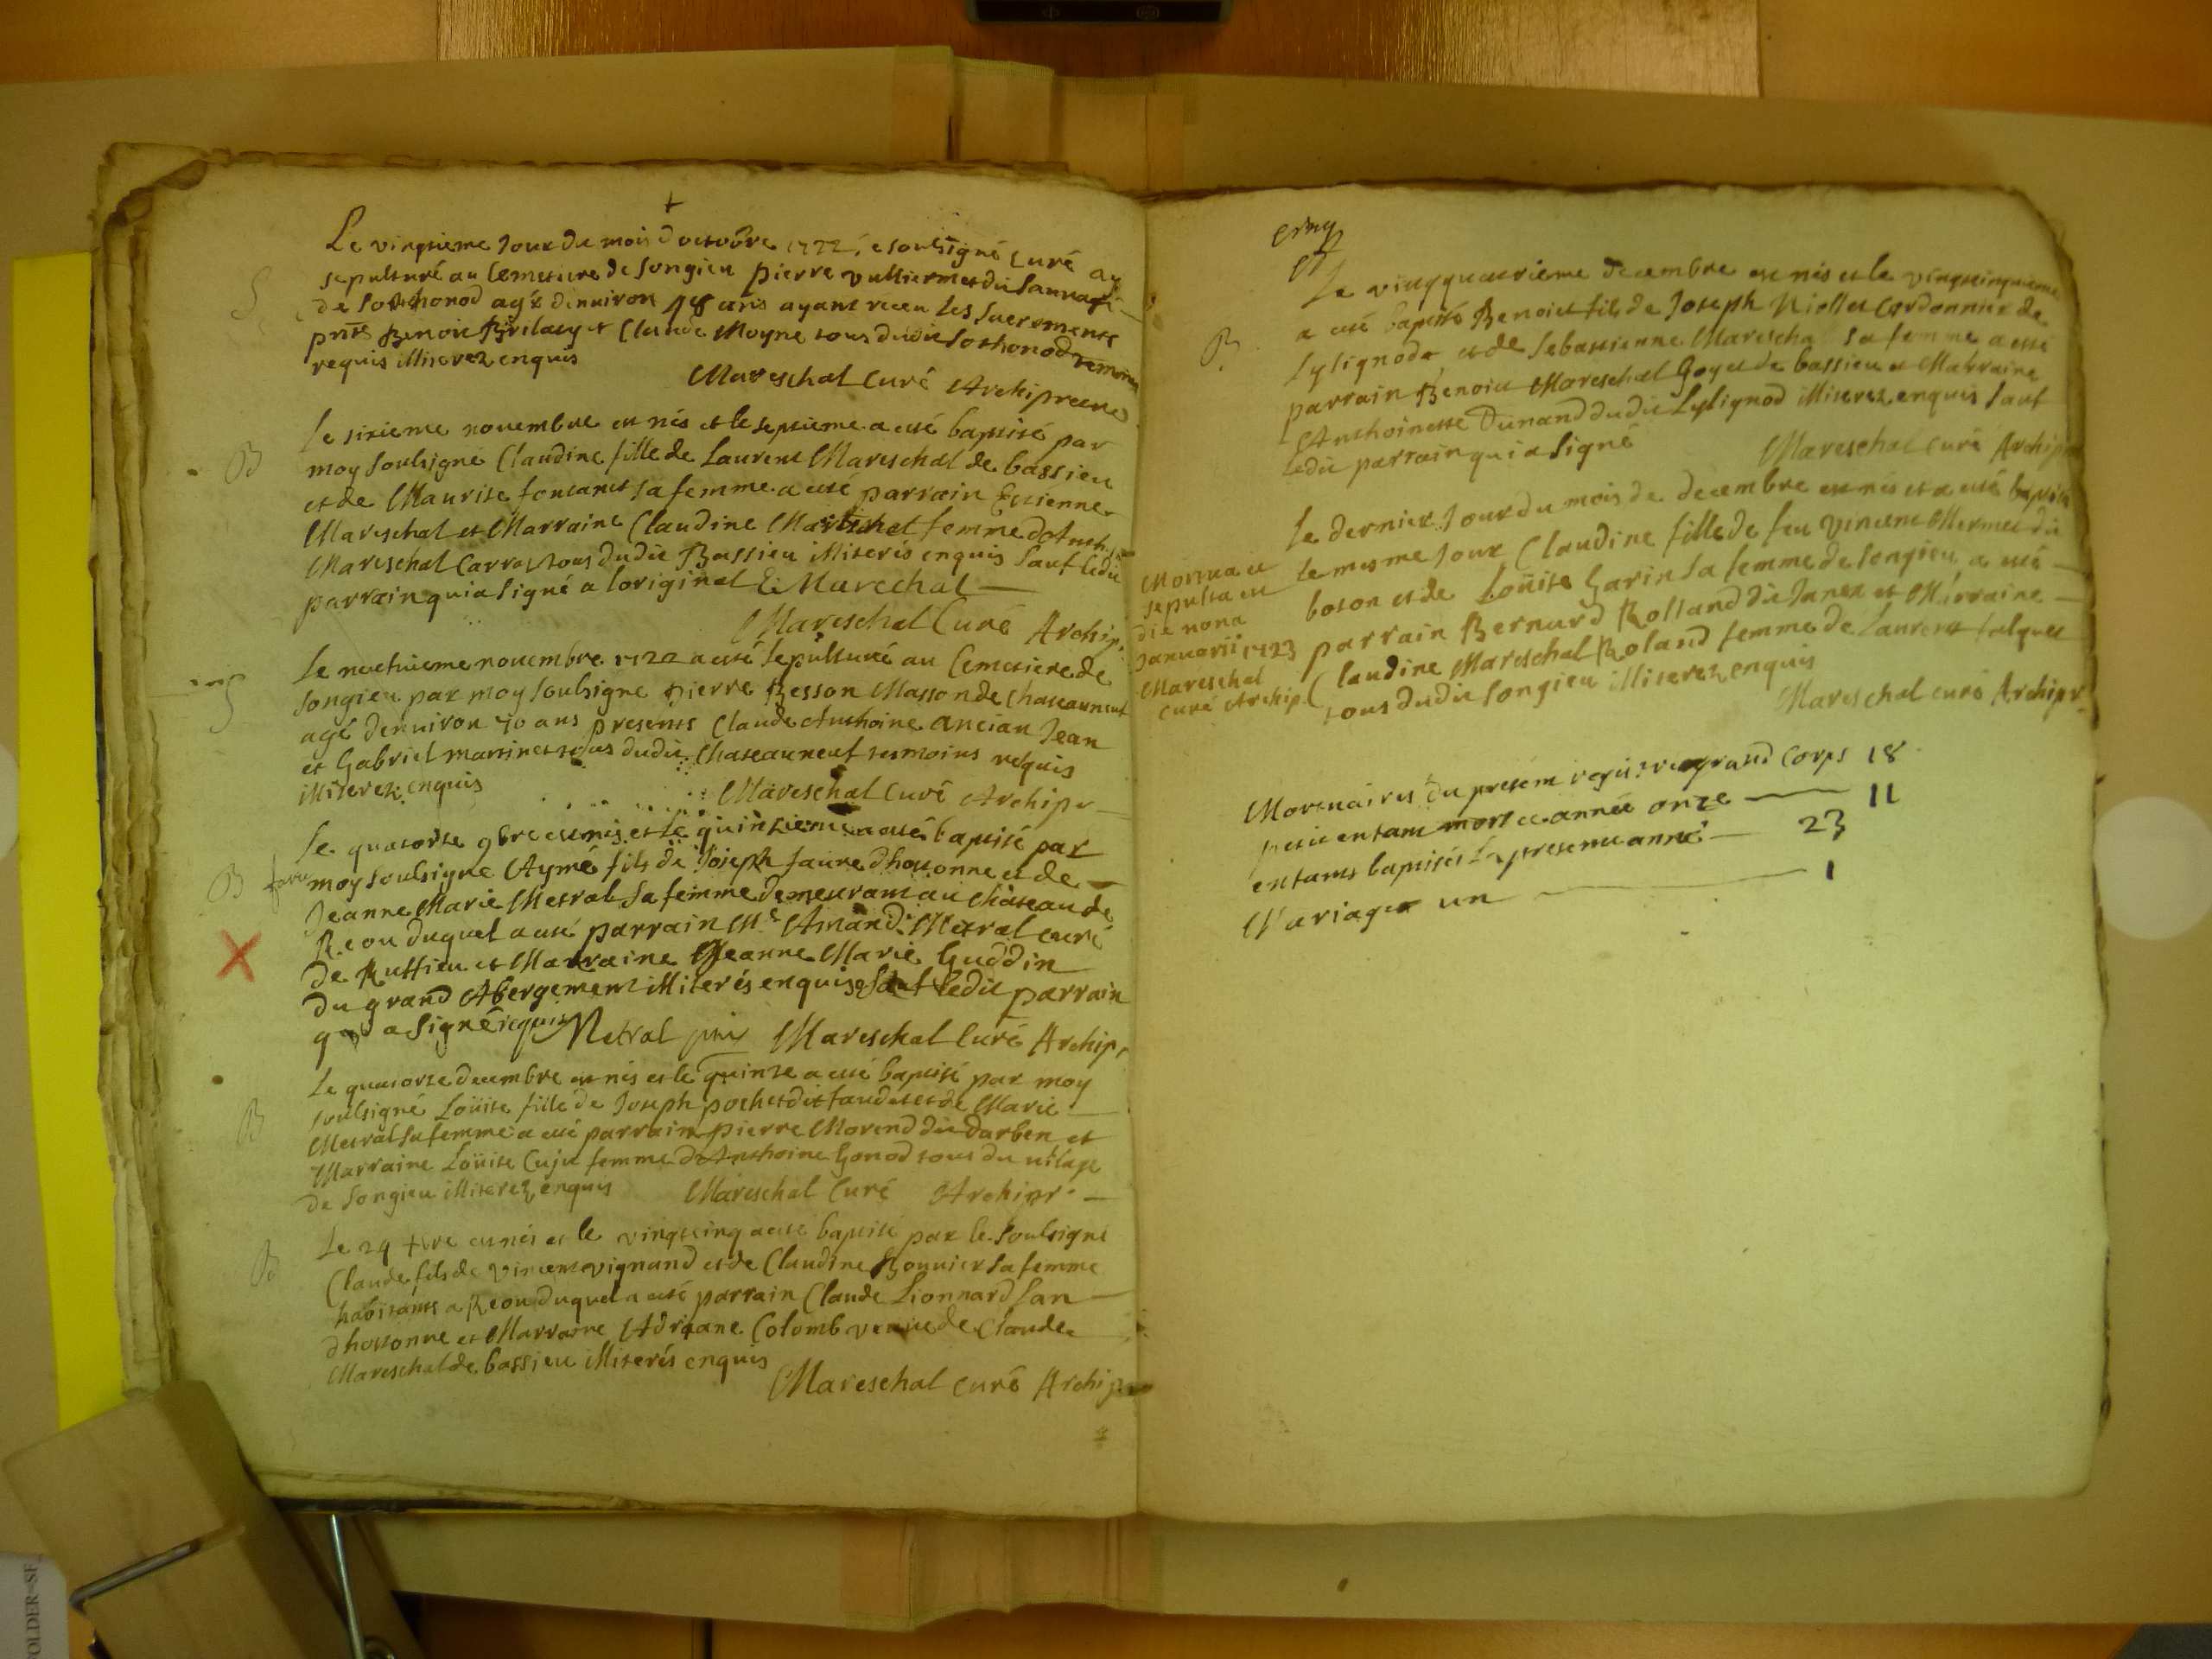 Le vingtieme Jour du mois d octobre 1722 Je soubsigné Curé ay
sepulturé au Cemetiere de Songieu pierre vulliermet dit Sauvage
de Sothonod agé d enuiron ans ayant receu les Sacrements
pnts Benoit et Claude Moyne tous dudit Sothonod temoins
requis illiterez enquis
Mareschal Curé Archipretre
S
B
Le sixieme nouembre est née et le septieme a esté baptisé par
moy soubsigné Claudine fille de Laurent Mareschal de bassieu
et de Maurise fontanet sa femme a esté parrain Estienne
Mareschal et Marraine Claudine Mareschal femme d Anth.
Mareschal Carraz tous dudit Bassieu illiterés enquis Sauf ledit
parrain qui a signé a loriginal E Marechal
Mareschal Curé Archip.
S
Le neufuieme nouembre 1722 a esté sepulturé au Cemetiere de
Songieu par moy soubsigné pierre Besson Masson de Chateauneuf
agé denuiron 70 ans presents Claude Anthoine ancian Jean
et Gabriel martinet tous dudit Chateauneuf tesmoins requis
illiterez enquis
Mareschal Curé Archipr
B
favre
Le quatorze 9bre est nis et le quinzieme a esté baptisé par
moy soubsigne Aymé fils de Joseph favre d hotonne et de
Jeanne Marie Metral sa femme demeurant au Chateau de
Reou duquel a esté parrain Mre Amand Metral curé
de Ruffieu et Marraine Jeanne Marie Guddin
du grand Abergement illiterés enquise Sauf ledit parrain
qui a signé requis Metral pnt Mareschal Curé Archip.
B
Le quatorze decembre est nis et le quinze a esté baptisé par moy
soubsigné Loüise fille de Joseph pochet dit faudet et de Marie
Metral sa femme a esté parrain pierre Morend dit darben et
Marraine Loüise Cuju femme d Anthoine Gonod tous du vilage
de Songieu illiterez enquis Mareschal Curé Archipr.
B
Le 24 xbre est nés et le vingtcinq a esté baptisé par le soubsigné
Claude fils de vincent vignand et de Claudine Bonnier sa femme
habitants a Reou duquel a esté parrain Claude Lionnard San
d hotonne et Marraine Adriane Colomb veuue de Claude
Mareschal de bassieu illiterés enquis
Mareschal Curé Archip
cinq
B.
Le vingquatrieme decembre est nés et le vingtcinquieme
a esté baptisé Benoict fils de Joseph Niollet Cordonnier de
Lylignod et de Sebastienne Marescha sa femme a esté
parrain Benoict Mareschal Goyet de bassieu et Marraine
Anthoinette Dunand dudit Lylignod illiterez enquis Sauf
ledit parrain qui a signé
Mareschal curé Archip
Le dernier Jour du mois de decembre est nés et a esté baptisé
le mesme Jour Claudine fille de feu vincent Mermet dit
boton et de Loüise Garin sa femme de Songieu a esté
parrain Bernard Rolland dit Janex et Marraine
Claudine Mareschal Roland femme de Laurent falquet
tous dudit Songieu illiterez enquis
Mareschal curé Archipr.
Mortua et
sepulta est
die nona
Januarii 1723
Mareschal
curé Archip.
Mortuaires du present registre grand Corps 18
petit enfans mort ce année onze 11
enfants baptisés la presente année 23
Mariages un 1
OLDER-SF